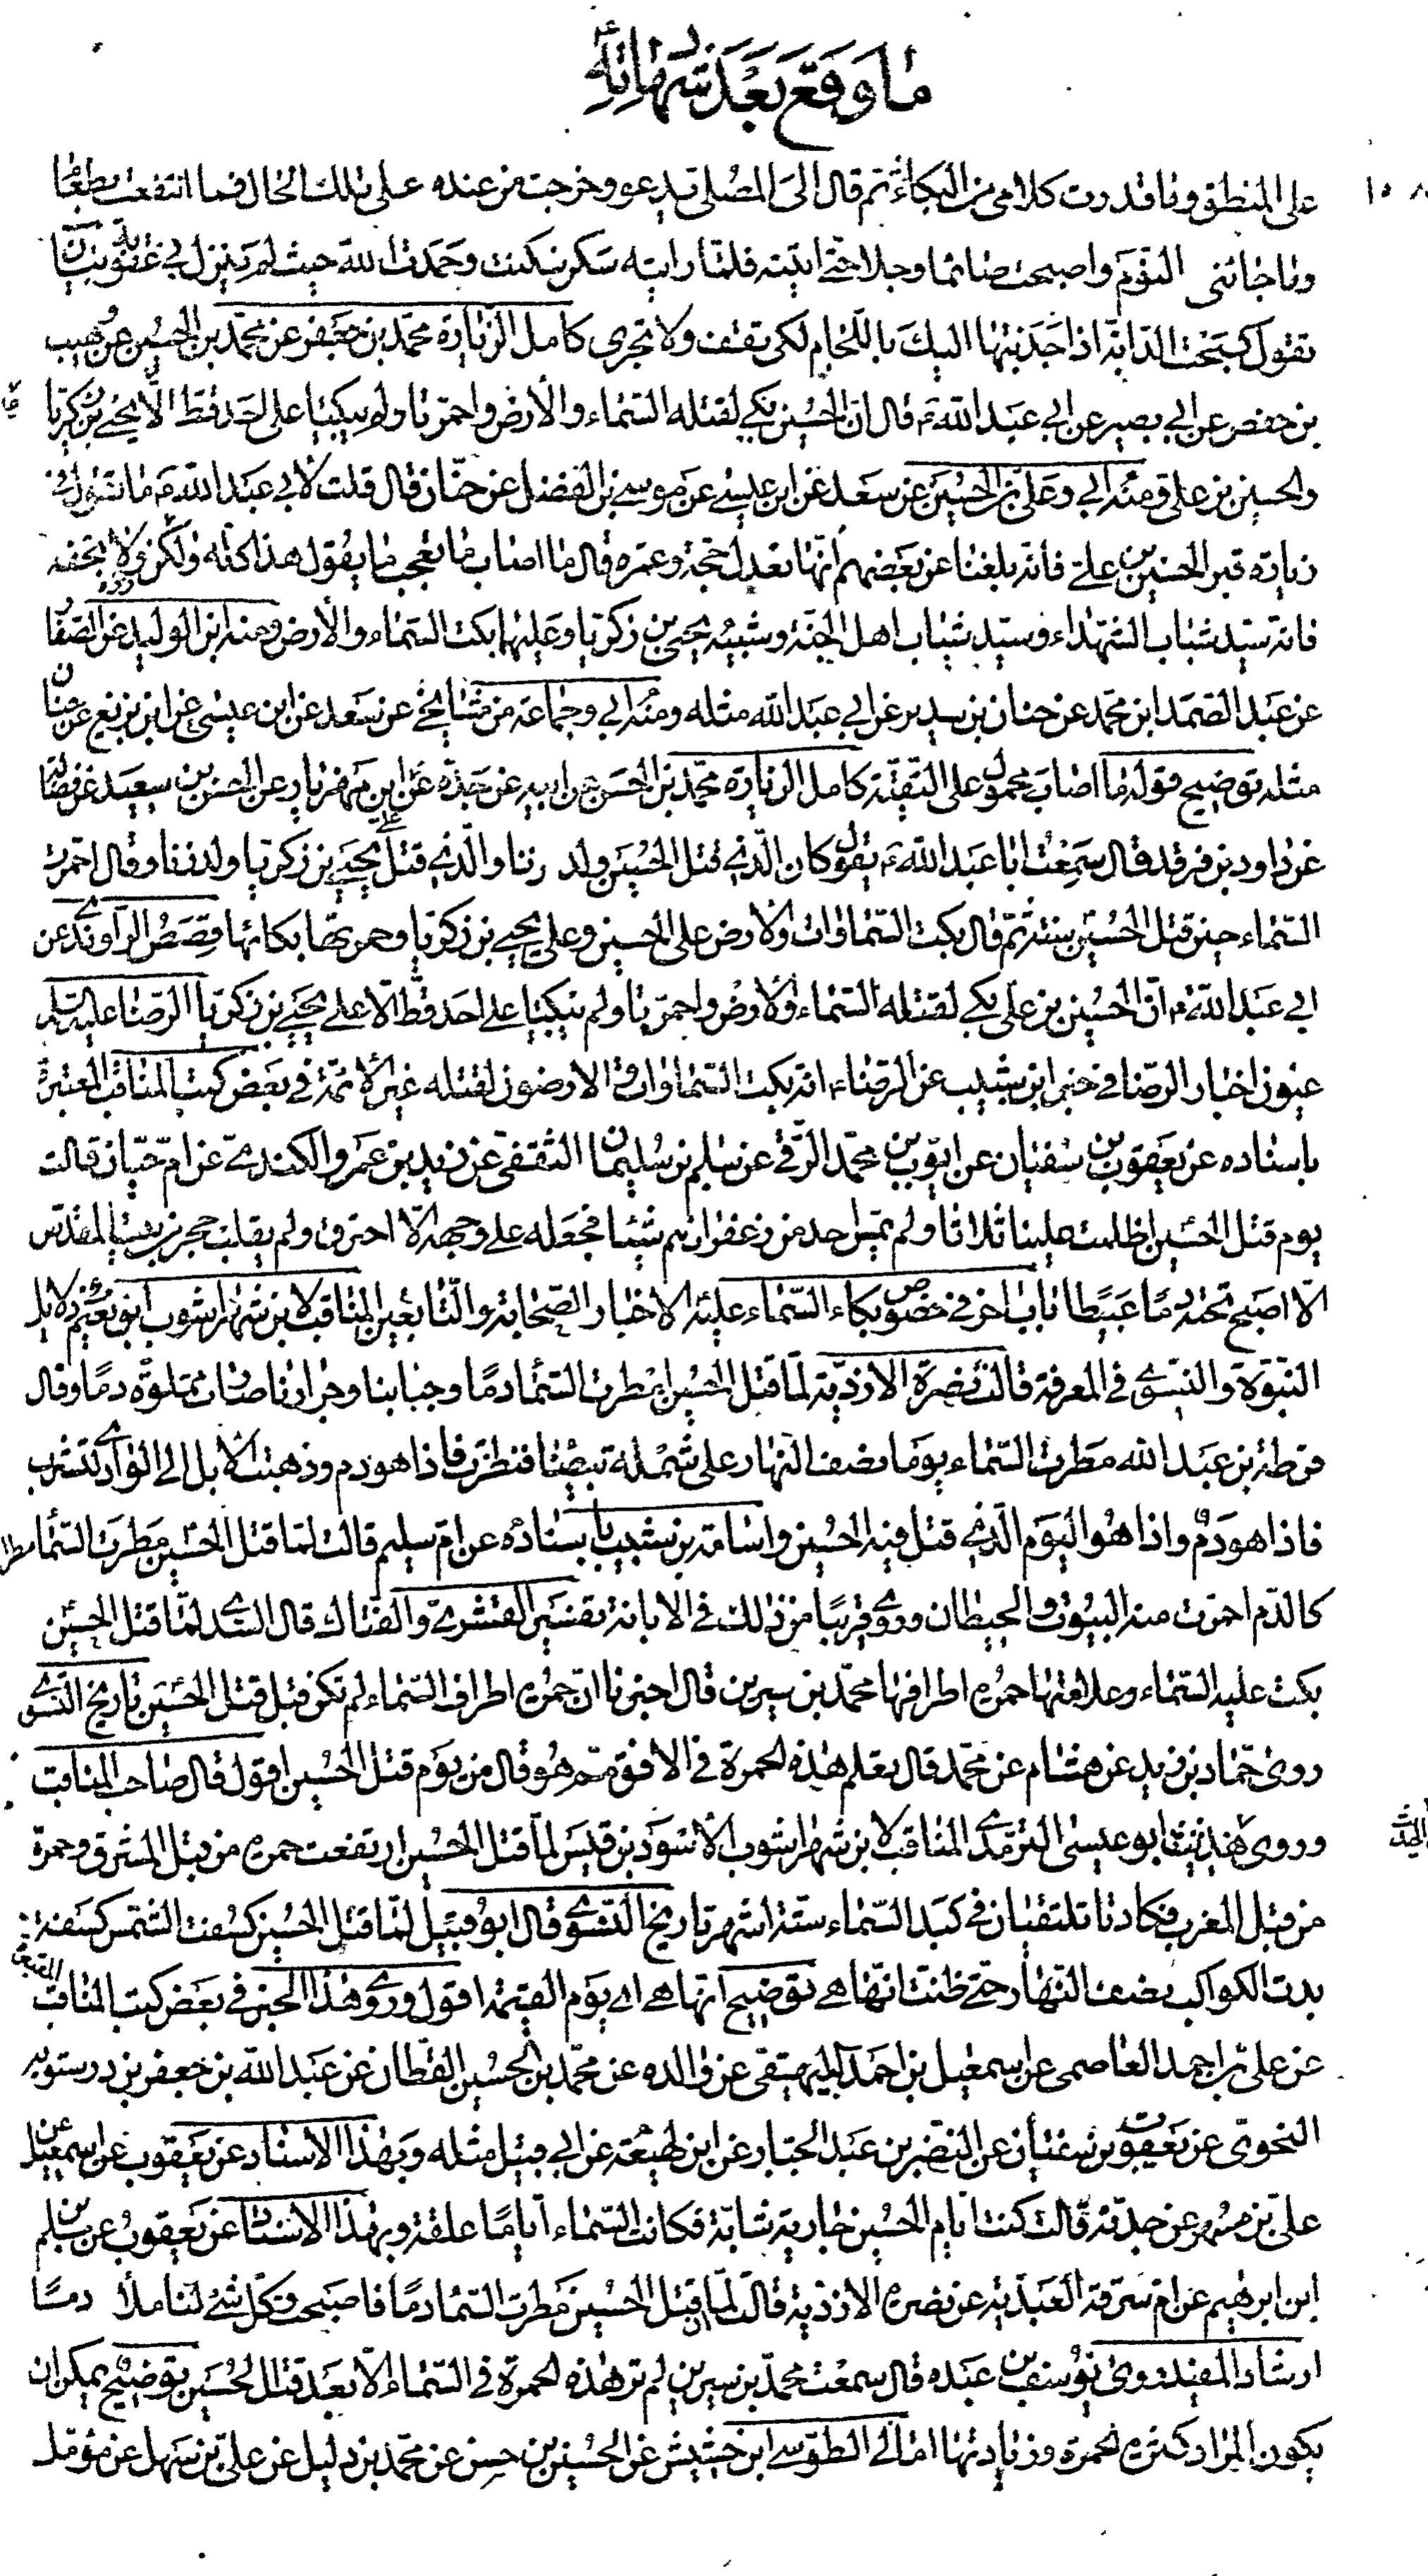 ما وقع بعد شهادته
١٠٨
على المنطق وما قدرت كلامي من البكاء ثم قال الى المصلى يدعو وخرجت من عنده على تلك الحال فما انتفعت بطعام
وما جائني النوم واصبحت صائما وجلا حتى اتيته فلما رايته سكن سكنت وحمدت الله حيث لم ينزل بي عقوبة بيان
تقول كبحت الدابة اذا جذبتها اليك باللجام لكى تقف ولا تجرى كامل الزيارة محمد بن جعفر عن محمد بن الحسين عن وهيب
بن حفص عن ابي بصير عن ابي عبد الله ع قال ان الحسين بكى لقتله السماء والأرض واحمرتا ولم يبكيا على احد قط الا يحيى بن زكريا
والحسين بن علي ومنه ابي وعلى بن الحسين عن سعد عن ابن عيسى عن موسى بن الفضل عن حنان قال قلت لأبي عبد الله ع ما تقول في
زيارة قبر الحسين بن على فانه بلغنا عن بعضهم انها تعدل حجة وعمرة قال ما اصاب ما تعجب ما يقول هذا كله ولكن زره ولا تجفه
فانه سيد شباب الشهداء وسيد شباب اهل الجنة وشبيه يحيى بن زكريا وعليهما بكت السماء والأرض ومنه ابن الوليد عن الصفار
عن عبد الصمد ابن محمد عن حنان بن سدير عن ابي عبد الله مثله ومنه ابي وجماعة من مشايخي عن سعد عن ابن عيسى عن ابن بزيع عن حنان
مثله توضيح قوله ما اصاب محمول على التقية كامل الزيارة محمد بن الحسن عن ابيه عن جده على بن مهزيار عن الحسن بن سعيد عن فضالة
عن داود بن فرقد قال سمعت ابا عبد الله ع يقول كان الذي قتل الحسين ولد زنا والذي قتل يحيى بن زكريا ولد زنا وقال احمرت
السماء حين قتل الحسين سنة ثم قال بكت السماوات والأرض على الحسين وعلى يحيى بن زكريا وحمرتها بكائها قصص الراوندي عن
ابي عبد الله ع ان الحسين بن على بكى لقتله السماء والأرض واحمرتا ولم يبكيا على احد قط الا على يحيى بن زكريا الرضا عليه السلم
عيون اخبار الرضا في خبر ابن شبيب عن الرضا ع انه بكت السماوات والارضون لقتله غير الأئمة في بعض كتب المناقب المعتبرة
باسناده عن يعقوب بن سفيان عن ايوب بن محمد الرقي عن سلم بن سليمان الثقفي عن زيد بن عمرو الكندي عن ام حيان قالت
يوم قتل الحسين اظلمت علينا ثلاثا ولم يمس احد من زعفرانهم شيئا فجعله على وجهه الا احترق ولم يقلب حجر ببيت المقدس
الا اصبح تحته دما عبيطا باب اخر في خصوص بكاء السماء عليه الاخبار الصحابة والتابعين المناقب لابن شهراشوب ابو نعيم في دلايل
النبوة والنسوي في المعرفة قالت نضرة الازدية لما قتل الحسين امطرت السماء دما وجبابنا وجرارنا صارت مملوة دما وقال
قرظة بن عبد الله مطرت السماء يوما نصف النهار على شملة بيضاء فنظرت فاذا هو دم وذهبت الأبل الى الوادي لتشرب
فاذا هو دم واذا هو اليوم الذي قتل فيه الحسين واسامة بن شبيب باسناده عن ام سليم قالت لما قتل الحسين مطرت السماء مطرا
كالدم احمرت منه البيوت والحيطان وروى قريبا من ذلك في الابانة تفسير القشيري والفتال قال السدي لما قتل الحسين
بكت عليه السماء وعلامتها حمرة اطرافها محمد بن سيرين قال اخبرنا ان حمرة اطراف السماء لم تكن قبل قتل الحسين تاريخ النسوي
روى حماد بن زيد عن هشام عن محمد قال تعلم هذه الحمرة في الافق مم هو قال من يوم قتل الحسين اقول قال صاحب المناقب
وروى هذا الحديث ابو عيسى الترمذي المناقب لابن شهراشوب الأسود بن قيس لما قتل الحسين ارتفعت حمرة من قبل المشرق وحمرة
من قبل المغرب فكادتا تلتقيان في كبد السماء ستة اشهر تاريخ النسوي قال ابو قبيل لما قتل الحسين كسفت الشمس كسفة
بدت الكواكب نصف النهار حتى ظننت انها هي توضيح انها هي اي يوم القيمة اقول وروى هذا الخبر في بعض كتب المناقب المعتبرة
عن على بن احمد العاصمي عن اسمعيل بن احمد البيهقي عن والده عن محمد بن الحسين القطان عن عبد الله بن جعفر بن درستويه
النحوي عن يعقوب بن سفيان عن النضر بن عبد الجبار عن ابن لهيعة عن ابي قبيل مثله وبهذا الاسناد عن يعقوب عن اسمعيل عن
على بن مسهر عن جدته قالت كنت ايام الحسين جارية شابة فكانت السماء اياما علقة وبهذا الاسناد عن يعقوب عن مسلم
ابن ابرهيم عن ام سرقة العبدية عن نضرة الازدية قالت لما ان قتل الحسين مطرت السماء دما فاصبحت وكل شئ لنا ملأ دما
ارشاد المفيد روى يوسف بن عبده قال سمعت محمد بن سيرين لم تر هذه الحمرة في السماء الا بعد قتل الحسين توضيح يمكن ان
يكون المراد كثرة الحمرة وزيادتها امالي الطوسي ابن خشيش عن الحسين بن حسن عن محمد بن دليل عن على بن سهل عن مؤمل